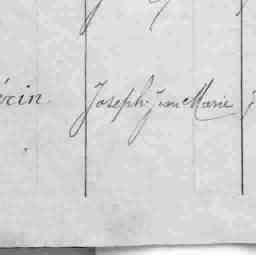 érin Joseph Jean Marie